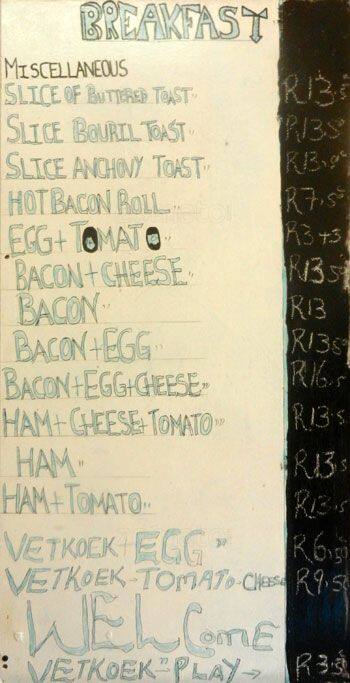 BREAKFAST
MISCELLANEOUS
SLICE OF BUTTERED TOAST" R13.5
SLICE BOURIL TOAST" R13.50
SLICE ANCHOVY TOAST" R13.50
HOT BACON ROLL" R7.50
EGG + TOMATO" R3+3
BACON + CHEESE" R13.5
BACON" R13
BACON + EGG" R13.50
BACON + EGG + CHEESE" R16.5
HAM + CHEESE + TOMATO" R13.5
HAM" R13.5
HAM + TOMATO" R13.5
VETKOEK + EGG" R6.50
VETKOEK - TOMATO - CHEESE R9.50
WELCOME
VETKOEK" - PLAY → R3.50